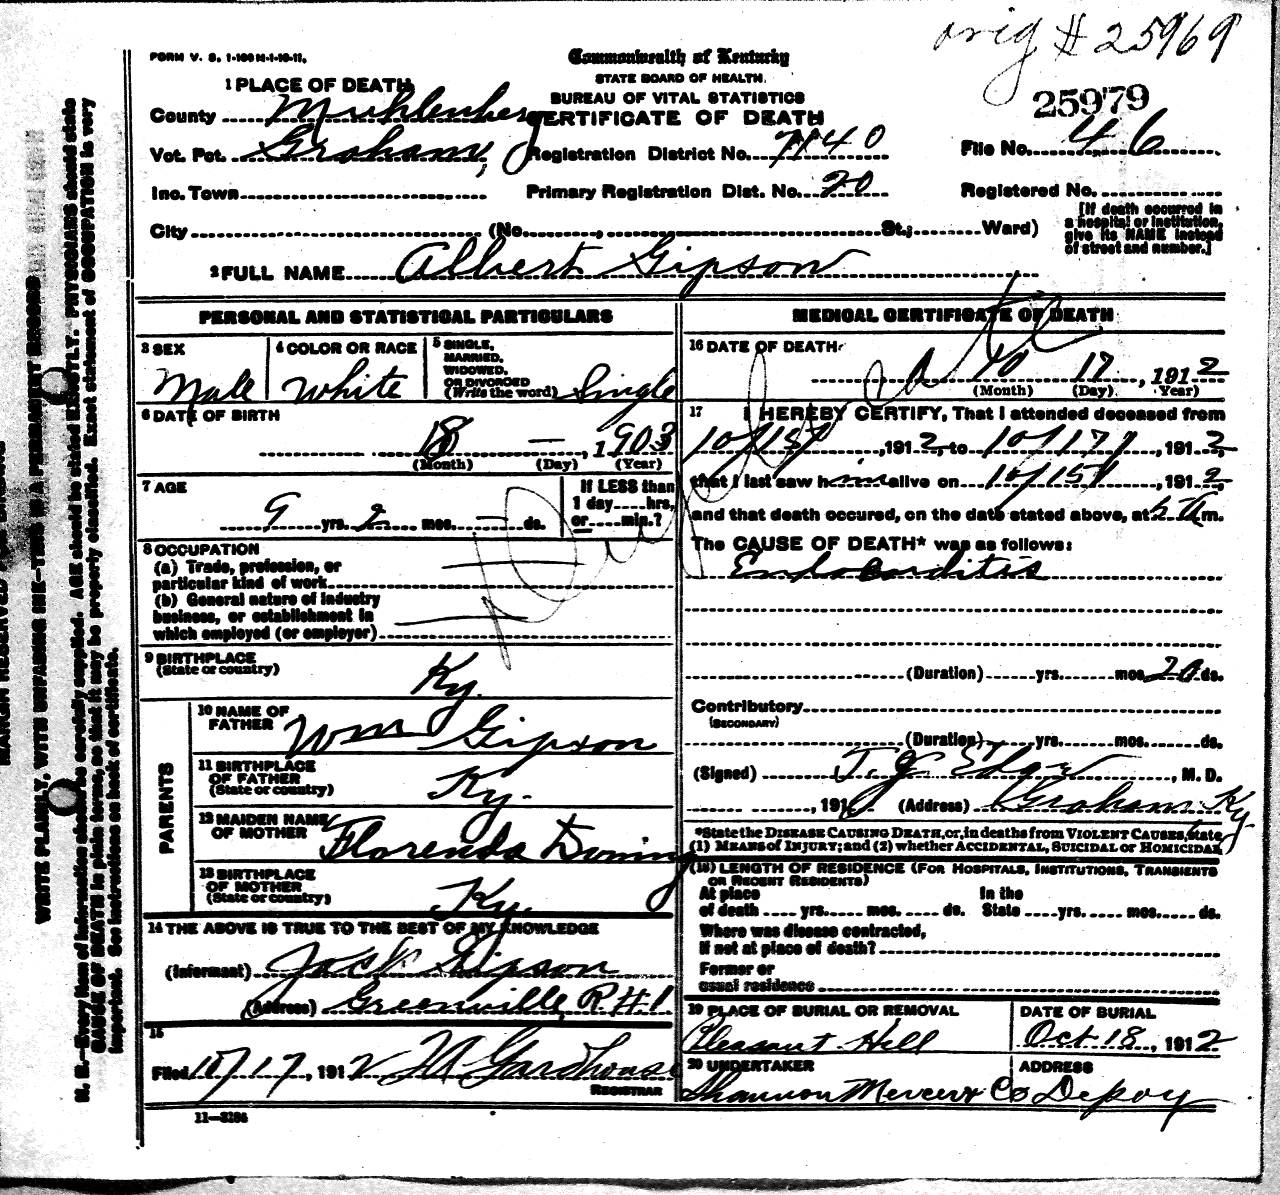 orig # 25969
FORM V. S. 1-100M-1-10-11.
Commonwealth of Kentucky
STATE BOARD OF HEALTH.
BUREAU OF VITAL STATISTICS
CERTIFICATE OF DEATH
25979
1 PLACE OF DEATH
County Muhlenberg
Vot. Pct. Graham,
Registration District No. 1140
File No. 46
Inc. Town
Primary Registration Dist. No. 20
Registered No.
City (No. , St.; Ward)
[If death occurred in a hospital or institution, give its NAME instead of street and number.]
2 FULL NAME Albert Gipson
PERSONAL AND STATISTICAL PARTICULARS
3 SEX Male
4 COLOR OR RACE White
5 SINGLE, MARRIED, WIDOWED, OR DIVORCED (Write the word) Single
6 DATE OF BIRTH
8 — , 1903
(Month) (Day) (Year)
7 AGE
9 yrs. 2 mos. — ds.
If LESS than 1 day hrs. or min.?
8 OCCUPATION
(a) Trade, profession, or particular kind of work
(b) General nature of industry business, or establishment in which employed (or employer)
9 BIRTHPLACE (State or country) Ky.
PARENTS
10 NAME OF FATHER Wm Gipson
11 BIRTHPLACE OF FATHER (State or country) Ky.
12 MAIDEN NAME OF MOTHER Florenda Doming
13 BIRTHPLACE OF MOTHER (State or country) Ky.
14 THE ABOVE IS TRUE TO THE BEST OF MY KNOWLEDGE
(Informant) Jack Gipson
(Address) Greenville, R.#1
15
Filed 10/17, 1912 M Gardhouse
REGISTRAR
11—3184
MEDICAL CERTIFICATE OF DEATH
16 DATE OF DEATH
10 17, 1912
(Month) (Day) (Year)
17 I HEREBY CERTIFY, That I attended deceased from
10/15, 1912, to 10/17, 1912,
that I last saw him alive on 10/15, 1912,
and that death occured, on the date stated above, at 5 A m.
The CAUSE OF DEATH* was as follows:
Endocarditis
(Duration) yrs. mos. 20 ds.
Contributory
(SECONDARY)
(Duration) yrs. mos. ds.
(Signed) T. J. Edgar, M. D.
, 191 (Address) Graham Ky
*State the DISEASE CAUSING DEATH, or, in deaths from VIOLENT CAUSES, state
(1) MEANS of INJURY; and (2) whether ACCIDENTAL, SUICIDAL or HOMICIDAL
(18) LENGTH OF RESIDENCE (FOR HOSPITALS, INSTITUTIONS, TRANSIENTS OR RECENT RESIDENTS)
At place of death yrs. mos. ds. In the State yrs. mos. ds.
Where was disease contracted,
if not at place of death?
Former or
usual residence
19 PLACE OF BURIAL OR REMOVAL
Pleasant Hill
DATE OF BURIAL
Oct 18, 1912
20 UNDERTAKER
Shannon Mercer Co
ADDRESS
Depoy
WRITE PLAINLY, WITH UNFADING INK—THIS IS A PERMANENT RECORD
N. B.—Every item of information should be carefully supplied. AGE should be stated EXACTLY. PHYSICIANS should state
CAUSE OF DEATH in plain terms, so that it may be properly classified. Exact statement of OCCUPATION is very
important. See instructions on back of certificate.